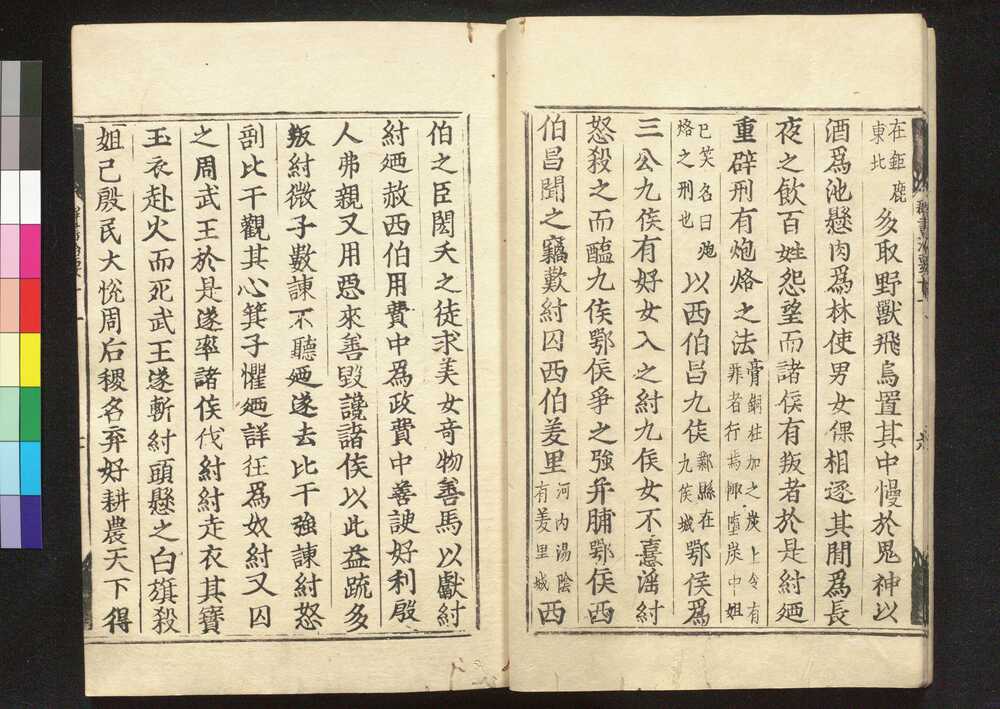 在鉅鹿東北多取野獸飛鳥置其中慢於鬼神以
酒爲池懸肉爲林使男女倮相逐其閒爲長
夜之飲百姓怨望而諸侯有叛者於是紂廼
重辟刑有炮烙之法膏銅柱加之炭上令有罪者行焉輙墮炭中妲
已笑名曰炮烙之刑也以西伯昌九侯鄴縣在九侯城鄂侯爲
三公九侯有好女入之紂九侯女不憙滛紂
怒殺之而醢九侯鄂侯爭之強幷脯鄂侯西
伯昌聞之竊歎紂囚西伯羑里河內湯陰有羑里城西
伯之臣閎夭之徒求美女奇物善馬以獻紂
紂廼赦西伯用費中爲政費中善諛好利殷
人弗親又用惡來善毀讒諸侯以此益疏多
叛紂微子數諫不聽廼遂去比干強諫紂怒
剖比干觀其心箕子懼廼詳狂爲奴紂又囚
之周武王於是遂率諸侯伐紂紂走衣其寶
玉衣赴火而死武王遂斬紂頭懸之白旗殺
妲己殷民大悅周后稷名弃好耕農天下得